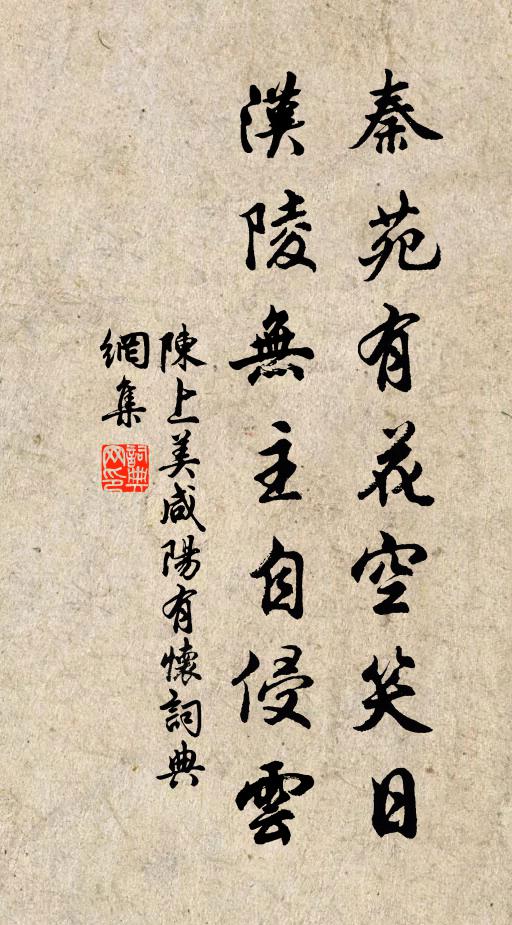 秦苑有花空笑日
漢陵無主自侵雲
陳上美咸陽有懷詞典
網集
詞典
网印